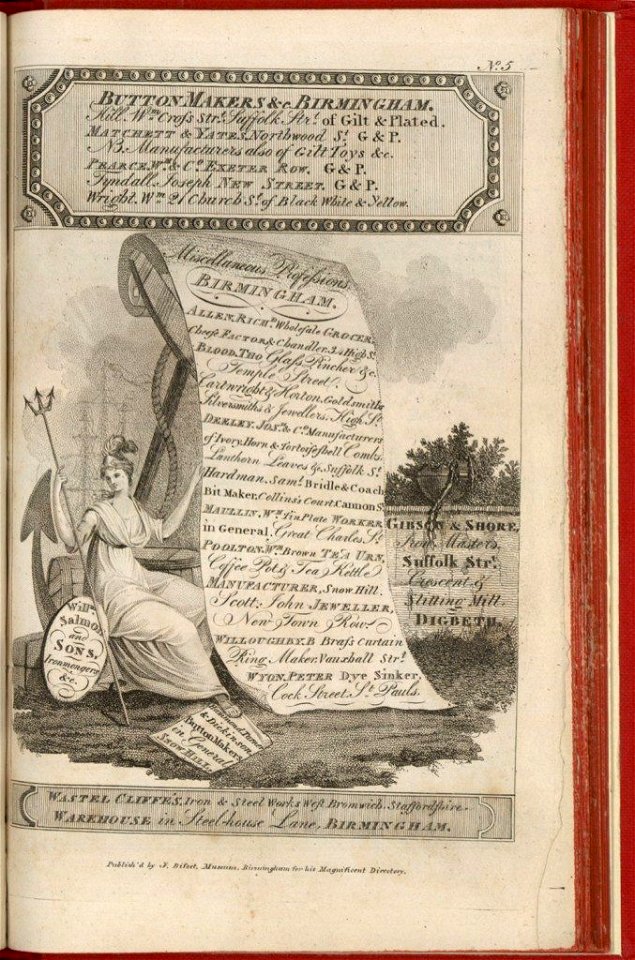 No. 5
BUTTON MAKERS &c. BIRMINGHAM.
Hill, Wm. Cross Strt. Suffolk Strt. of Gilt & Plated.
MATCHETT & YATES, Northwood St. G & P.
NB. Manufacturers also of Gilt Toys &c.
PEARCE Wm. & Co. EXETER ROW. G & P.
Tyndall, Joseph NEW STREET. G & P.
Wright, Wm. 21 Church St. of Black White & Yellow.
Miscellaneous Professions,
BIRMINGHAM.
ALLEN, RICHD. Wholesale GROCER,
Cheese FACTOR & Chandler, 34 High St.
BLOOD, THO. Glass Pincher &c.
Temple Street.
Cartwright & Horton, Goldsmiths
Silversmiths & Jewellers, High St.
DEELEY, JOS. & Co. Manufacturers
of Ivory, Horn & Tortoiseshell Combs,
Lanthorn Leaves &c. Suffolk St.
Hardman, Saml. Bridle & Coach
Bit Maker, Collins's Court Cannon S
MAULLIN, Wm. Tin Plate WORKER
in General, Great Charles St.
POOLTON, Wm. Brown TEA URN,
Coffee Pot & Tea Kettle
MANUFACTURER, Snow Hill.
Scott, John JEWELLER,
New Town Row.
WILLOUGHBY, B. Brass Curtain
Ring Maker, Vauxhall Strt.
WYON, PETER Dye Sinker,
Cock Street, St. Pauls.
GIBSON & SHORE,
Iron Masters,
Suffolk Strt.
Crescent &
Slitting Mill,
DIGBETH.
Willm.
Salmon
and
SONS,
Ironmongers
&c.
& Dickinson
Button Makers
in General
SNOW HILL
WASTEL CLIFFE'S, Iron & Steel Works West Bromwich, Staffordshire.
WAREHOUSE in Steelhouse Lane, BIRMINGHAM.
Publish'd by J. Bisset, Museum, Birmingham for his Magnificent Directory.